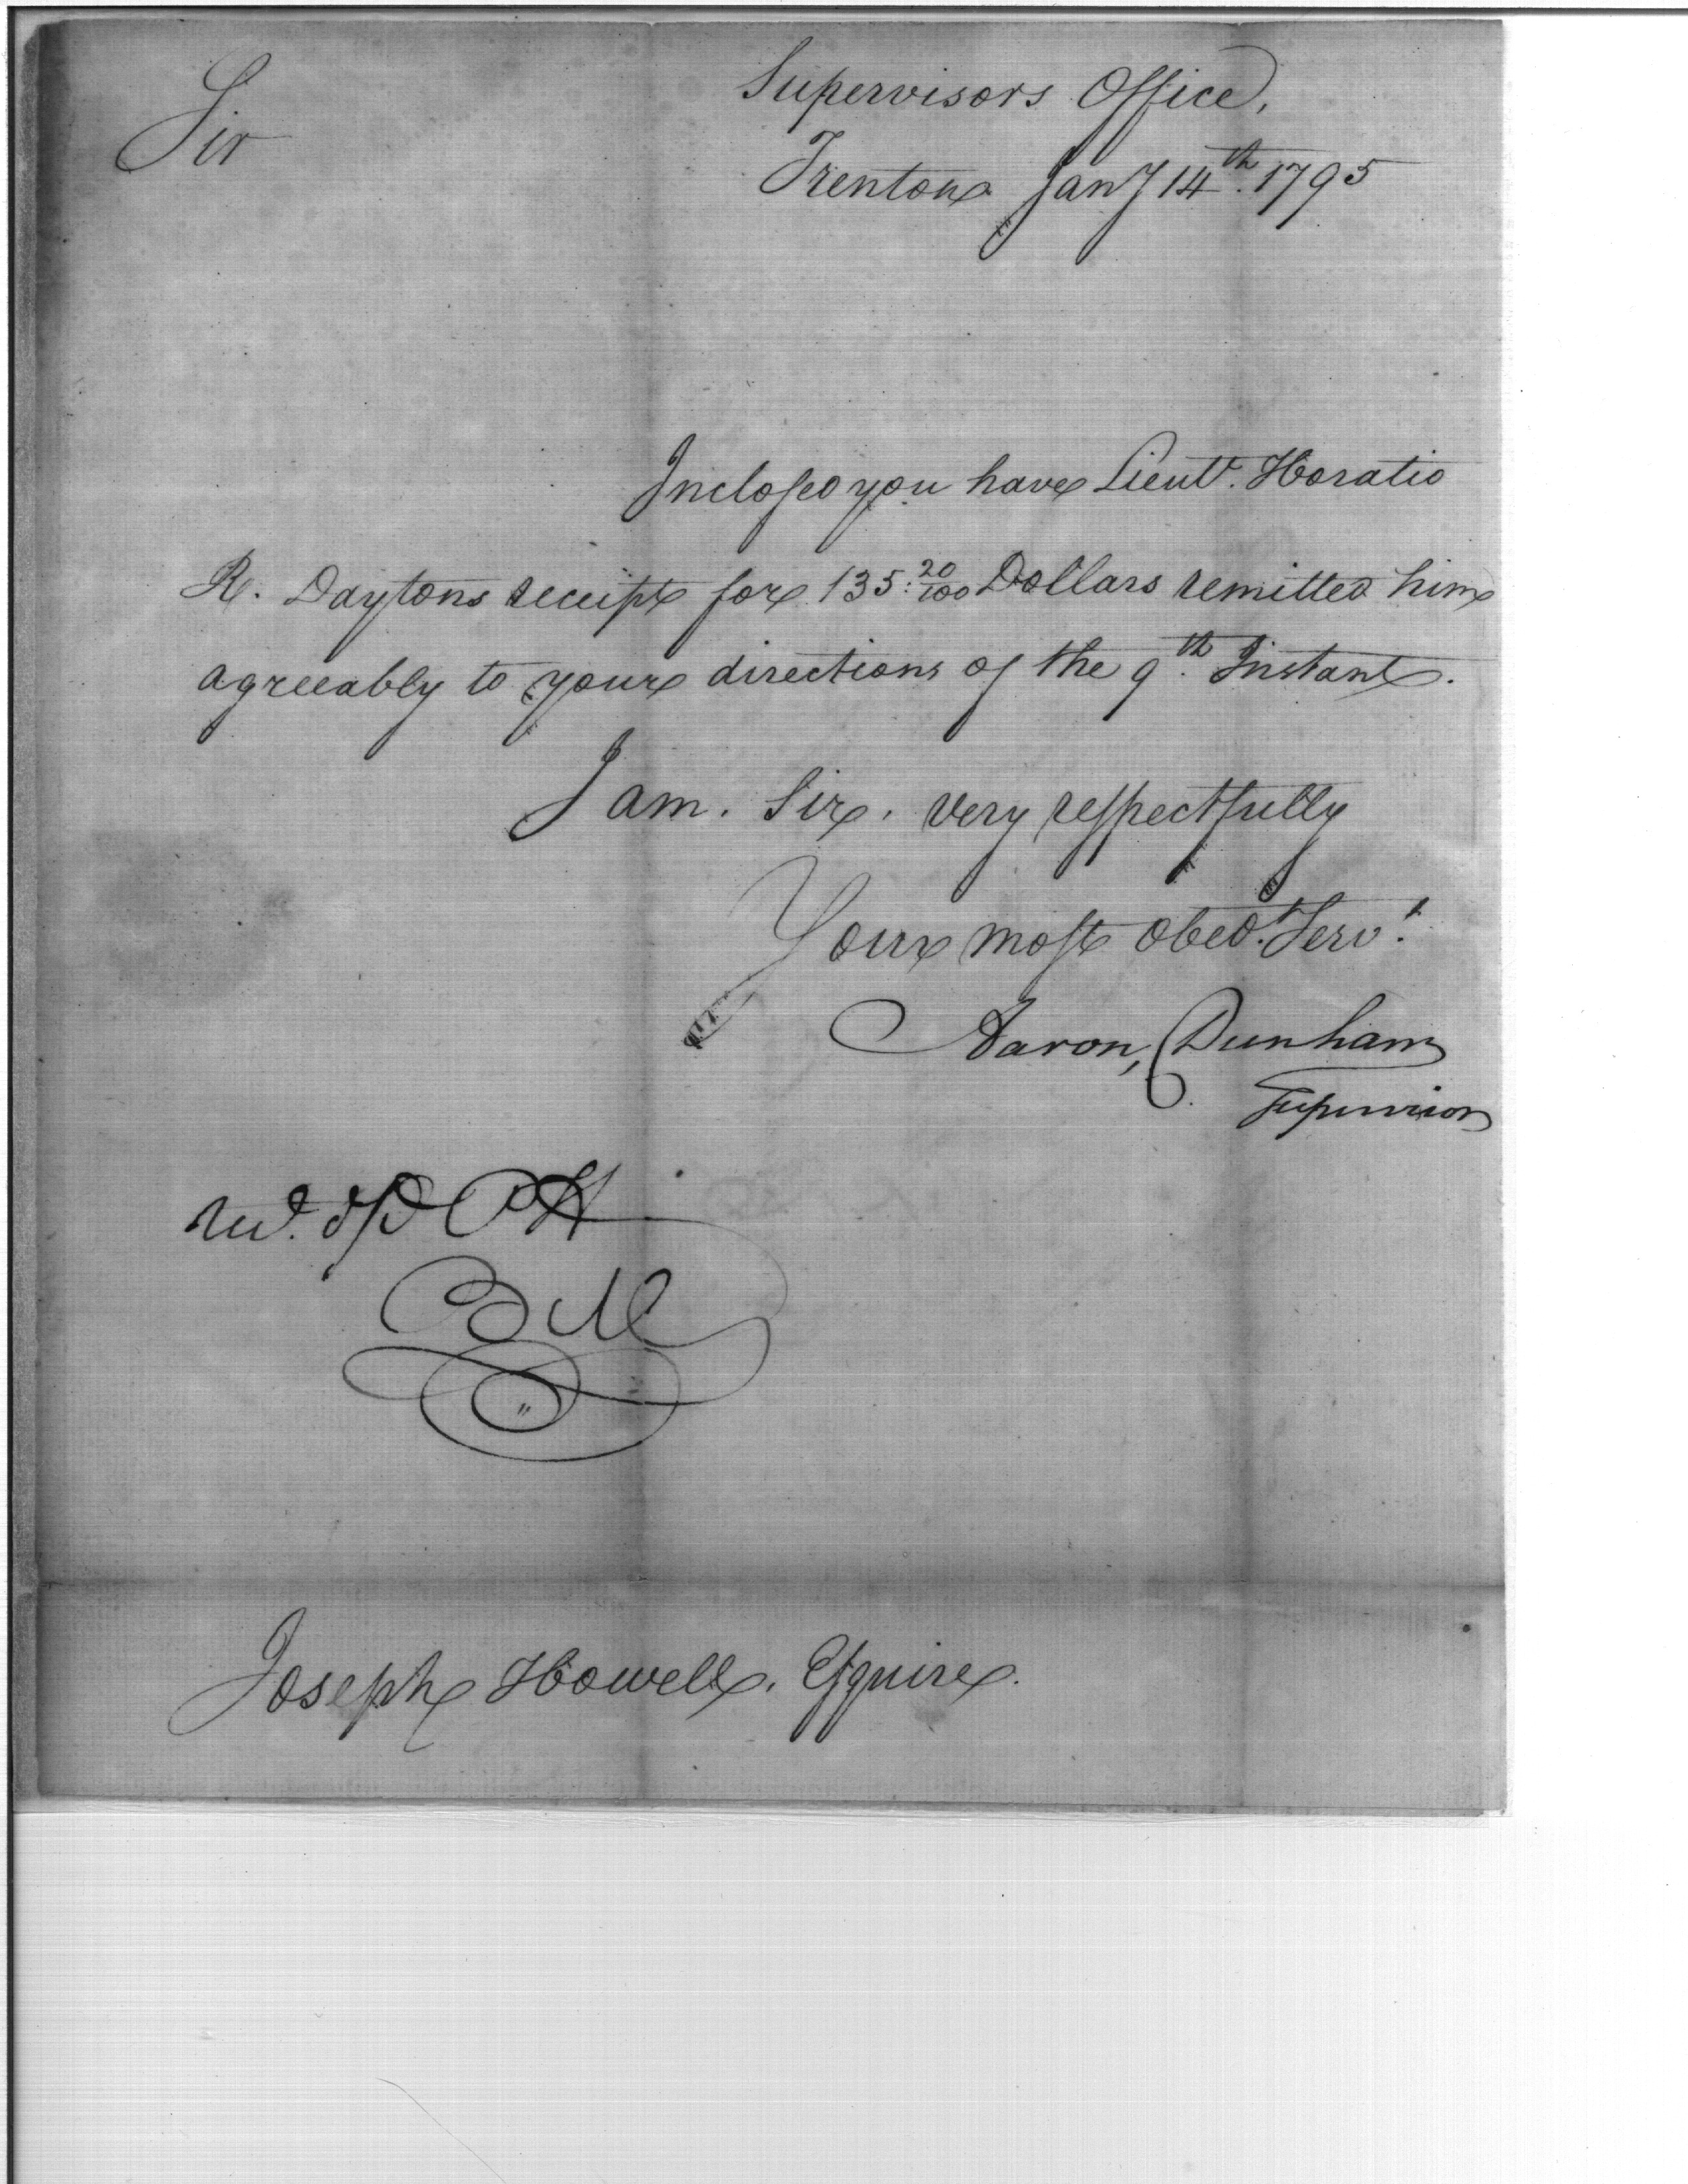 Supervisors Office,
Sir
Trenton Jany 14th. 1795
Inclosed you have Lieut. Horatio
R. Daytons receipt for 135:20/100 Dollars remitted him
agreeably to your directions of the 9th. Instant.
I am. Sir. very respectfully
Your most Obed. Servt.
Aaron Dunham
Supervisor
Joseph Howell. Esquire.